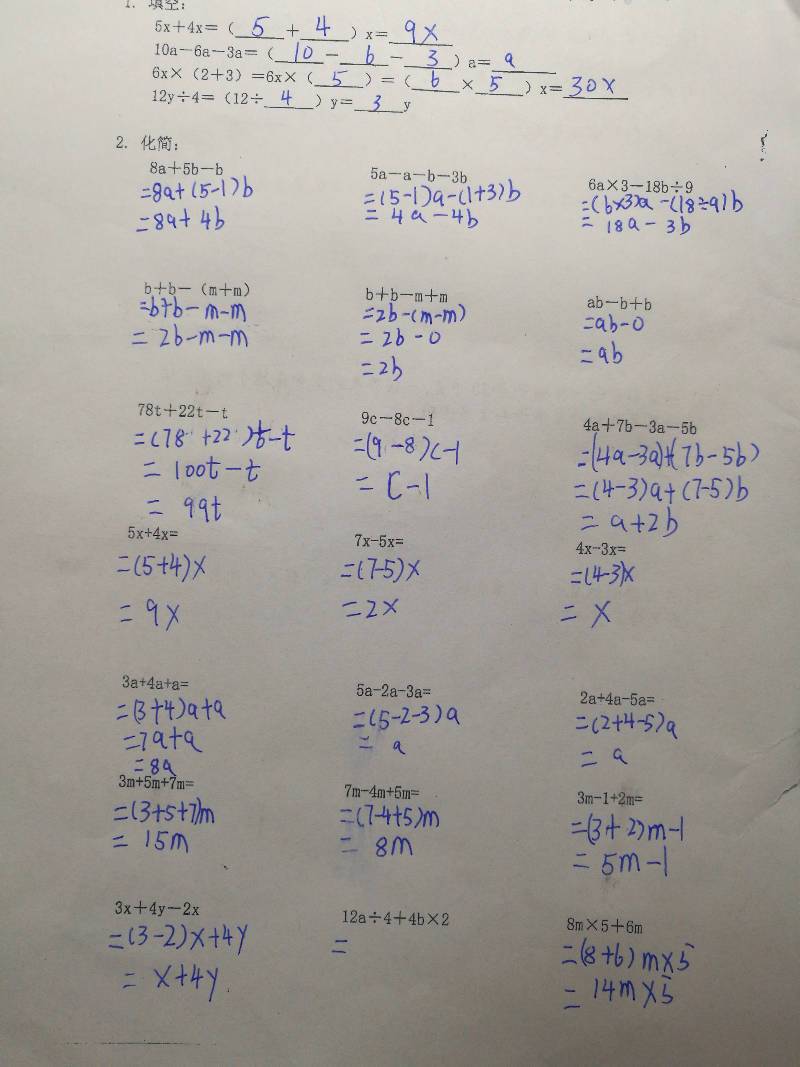 1. 填空：
5x＋4x＝（ 5 ＋ 4 ）x＝ 9x
10a－6a－3a＝（ 10 － 6 － 3 ）a＝ a
6x×（2＋3）＝6x×（ 5 ）＝（ 6 × 5 ）x＝ 30x
12y÷4＝（12÷ 4 ）y＝ 3 y
2. 化简：
8a＋5b－b
=8a+(5-1)b
=8a+4b
5a－a－b－3b
=(5-1)a-(1+3)b
= 4a-4b
6a×3－18b÷9
=(6×3)a-(18÷9)b
= 18a-3b
b＋b－（m＋m）
=b+b-m-m
= 2b-m-m
b＋b－m＋m
=2b-(m-m)
= 2b-0
=2b
ab－b＋b
=ab-0
=ab
78t＋22t－t
=(78+22)t-t
= 100t-t
= 99t
9c－8c－1
=(9-8)c-1
= c-1
4a＋7b－3a－5b
=(4a-3a)+(7b-5b)
=(4-3)a+(7-5)b
= a+2b
5x+4x=
=(5+4)x
= 9x
7x-5x=
=(7-5)x
=2x
4x-3x=
=(4-3)x
= x
3a+4a+a=
=(3+4)a+a
=7a+a
=8a
5a-2a-3a=
=(5-2-3)a
= a
2a+4a-5a=
=(2+4-5)a
= a
3m+5m+7m=
=(3+5+7)m
= 15m
7m-4m+5m=
=(7-4+5)m
= 8m
3m-1+2m=
=(3+2)m-1
= 5m-1
3x＋4y－2x
=(3-2)x+4y
= x+4y
12a÷4＋4b×2
=
8m×5＋6m
=(8+6)m×5
= 14m×5